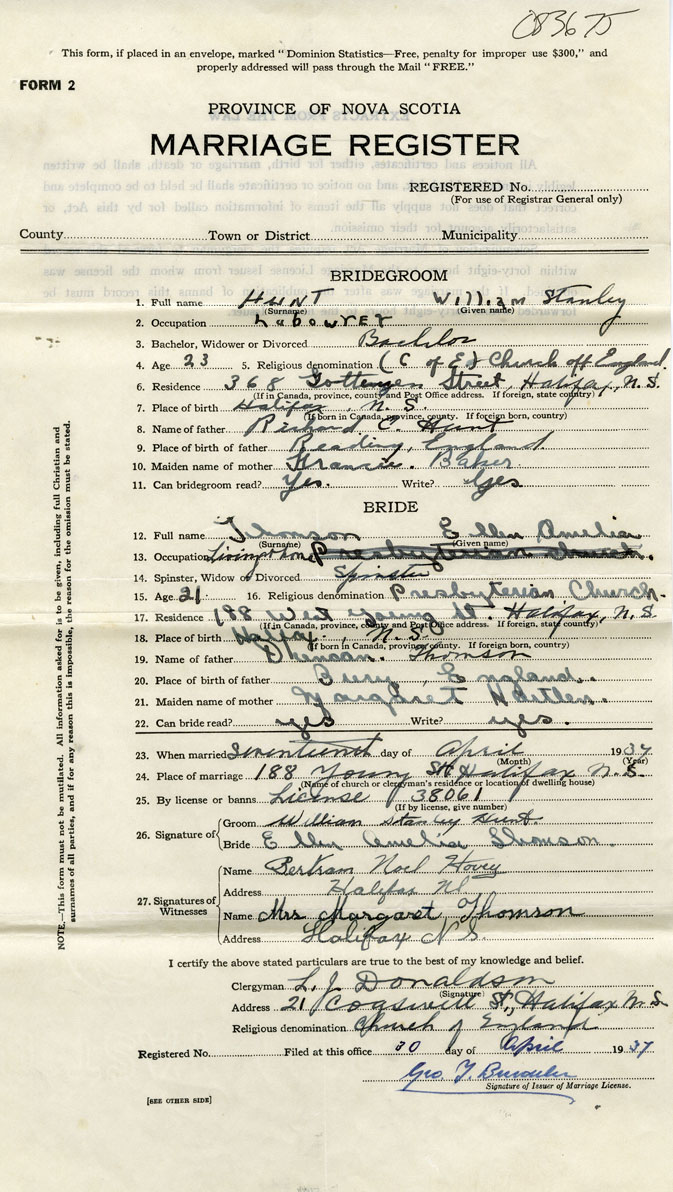 083675
This form, if placed in an envelope, marked "Dominion Statistics—Free, penalty for improper use $300," and
properly addressed will pass through the Mail "FREE."
FORM 2
PROVINCE OF NOVA SCOTIA
MARRIAGE REGISTER
REGISTERED No.
(For use of Registrar General only)
County Town or District Municipality
BRIDEGROOM
1. Full name HUNT William Stanley
(Surname) (Given name)
2. Occupation Labourer
3. Bachelor, Widower or Divorced Bachelor
4. Age 23 5. Religious denomination (C of E) Church off England.
6. Residence 368 Gottengen Street, Halifax, N.S.
(If in Canada, province, county and Post Office address. If foreign, state country)
7. Place of birth Halifax, N.S.
(If born in Canada, province, county. If foreign born, country)
8. Name of father Richard C. Hunt
9. Place of birth of father Reading, England
10. Maiden name of mother Francis. Baker
11. Can bridegroom read? Yes. Write? Yes
BRIDE
12. Full name Thomson Ellen Amelia
(Surname) (Given name)
13. Occupation Living home Presbyterian church.
14. Spinster, Widow or Divorced Spinster
15. Age 21 16. Religious denomination Presbyterian Church.
17. Residence 188 West Young St Halifax, N.S.
(If in Canada, province, county and Post Office address. If foreign, state country)
18. Place of birth Halifax., N.S.
(If born in Canada, province, county. If foreign born, country)
19. Name of father Thomson
20. Place of birth of father Bury, England.
21. Maiden name of mother Margaret
22. Can bride read? yes Write? yes.
23. When married day of April 1937
(Month) (Year)
24. Place of marriage 188 Young St Halifax N.S.
(Name of church or clergyman's residence or location of dwelling house)
25. By license or banns License 38061
(If by license, give number)
26. Signature of Groom William Stanley Hunt.
Bride Ellen Amelia Thomson.
27. Signatures of Witnesses Name Bertram Noel Hovey
Address Halifax NS
Name Mrs Margaret Thomson
Address Halifax N.S.
I certify the above stated particulars are true to the best of my knowledge and belief.
Clergyman L. J. Donaldson
(Signature)
Address 21 Cogswell St., Halifax N.S
Religious denomination Church of England
Registered No. Filed at this office 30 day of April 1937
Geo. T.
Signature of Issuer of Marriage License.
[SEE OTHER SIDE]
NOTE.—This form must not be mutilated. All information asked for is to be given, including full Christian and
surnames of all parties, and if for any reason this is impossible, the reason for the omission must be stated.